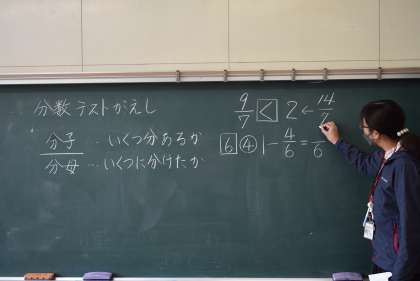 分数テストがえし
分子 … いくつ分あるか
分母 … いくつに分けたか
9/7 < 2 ← 14/7
6 ④ 1 - 4/6 = /6